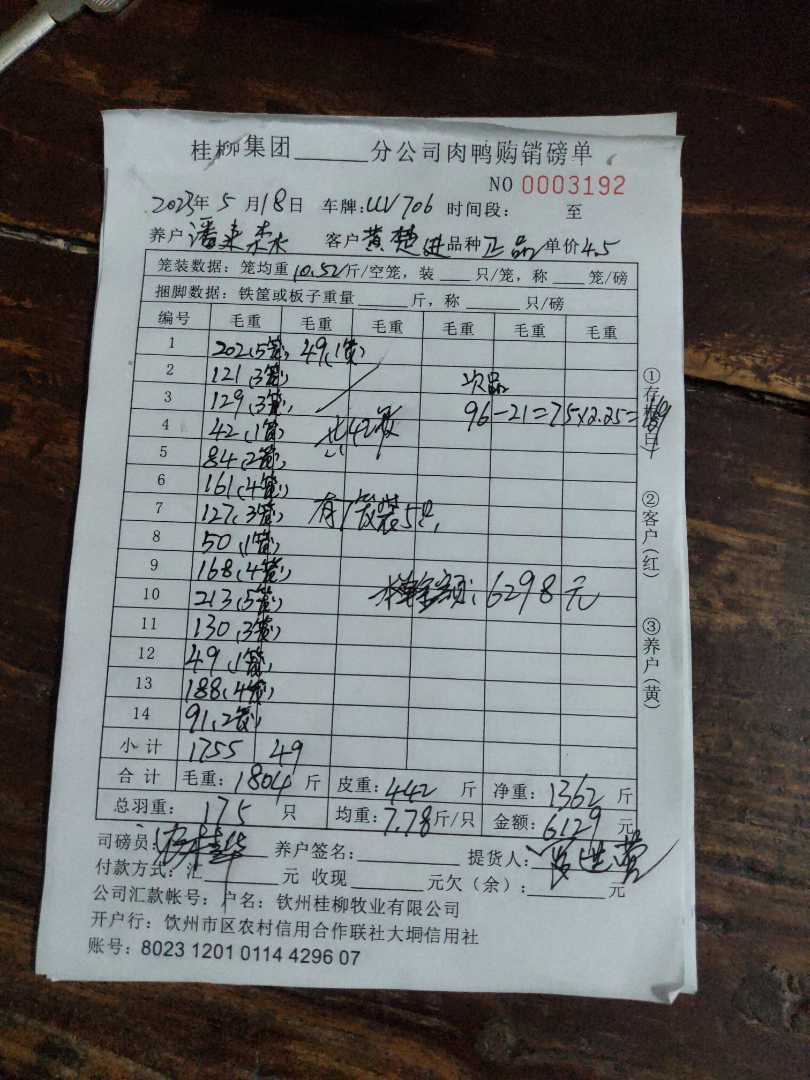 桂柳集团______分公司肉鸭购销磅单
NO 0003192
2023年 5 月18日 车牌:UV706 时间段: 至
养户 潘来 客户 黄楚进 品种 正品 单价4.5
笼装数据:笼均重10.52斤/空笼,装___只/笼,称___笼/磅
捆脚数据:铁筐或板子重量______斤,称______只/磅
编号 毛重 毛重 毛重 毛重 毛重 毛重
1 202(5笼) 49(1笼)
2 121(3笼)
3 129(3笼)
次品
96-21=75×2.25=169
4 42(1笼) 共42笼
5 84(2笼)
6 161(4笼)
7 127(3笼) 有1笼装5只
8 50(1笼)
9 168(4笼)
10 213(5笼) 金额:6298元
11 130(3笼)
12 49(1笼)
13 188(4笼)
14 91(2笼)
小计 1755 49
合计 毛重:1804斤 皮重:442 斤 净重:1362斤
总羽重: 175 只 均重:7.78斤/只 金额:6129元
司磅员: 养户签名:________ 提货人:
付款方式:汇________元 收现________元欠(余):________元
公司汇款帐号:户名:钦州桂柳牧业有限公司
开户行:饮州市区农村信用合作联社大垌信用社
账号:8023 1201 0114 4296 07
①存根(白)
②客户(红)
③养户(黄)